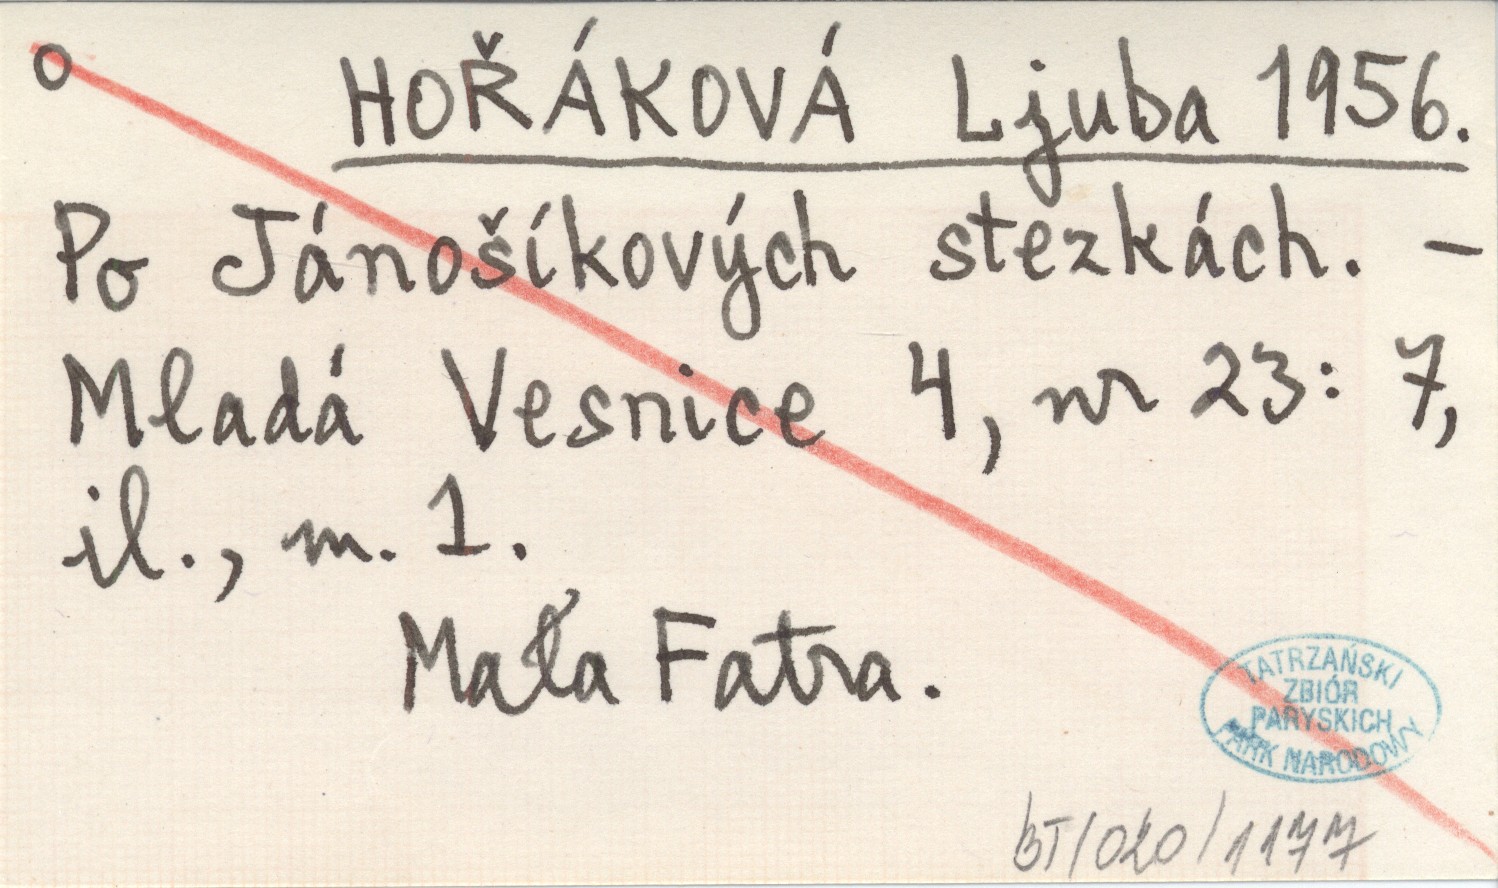 o HOŘÁKOVÁ Ljuba 1956.
Po Jánošíkových stezkách. -
Mladá Vesnice 4, nr 23: 7,
il., m. 1.
Mała Fatra.
TATRZAŃSKI
ZBIÓR
PARYSKICH
PARK NARODOWY
BT/020/1177